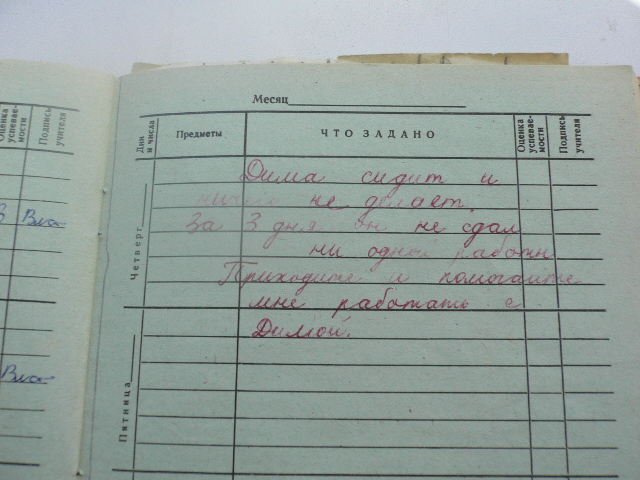 Оценка успевае-мости
Подпись учителя
3 Вла
Вла
Месяц
Дни и числа
Предметы
ЧТО ЗАДАНО
Оценка успевае-мости
Подпись учителя
Четверг
Дима сидит и
ничего не делает.
За 3 дня он не сдал
ни одной работы
Приходите и помогайте
мне работать с
Димой.
Пятница